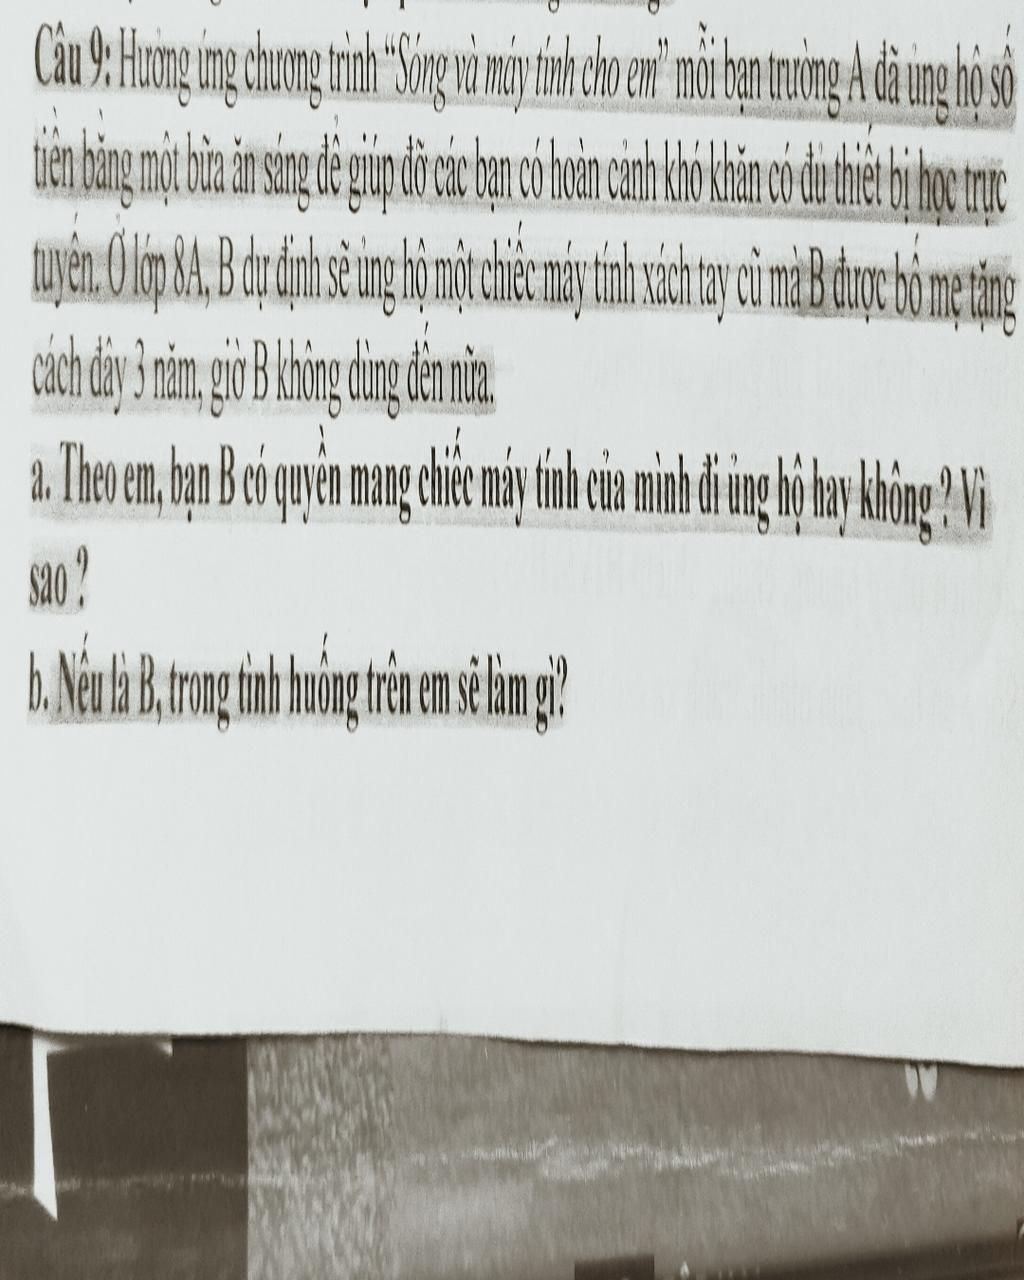 Câu 9: Hưởng ứng chương trình “Sóng và máy tính cho em” mỗi bạn trường A đã ủng hộ số
tiền bằng một bữa ăn sáng để giúp đỡ các bạn có hoàn cảnh khó khăn có đủ thiết bị học trực
tuyến. Ở lớp 8A, B dự định sẽ ủng hộ một chiếc máy tính xách tay cũ mà B được bố mẹ tặng
cách đây 3 năm, giờ B không dùng đến nữa.
a. Theo em, bạn B có quyền mang chiếc máy tính của mình đi ủng hộ hay không ? Vì
sao ?
b. Nếu là B, trong tình huống trên em sẽ làm gì?